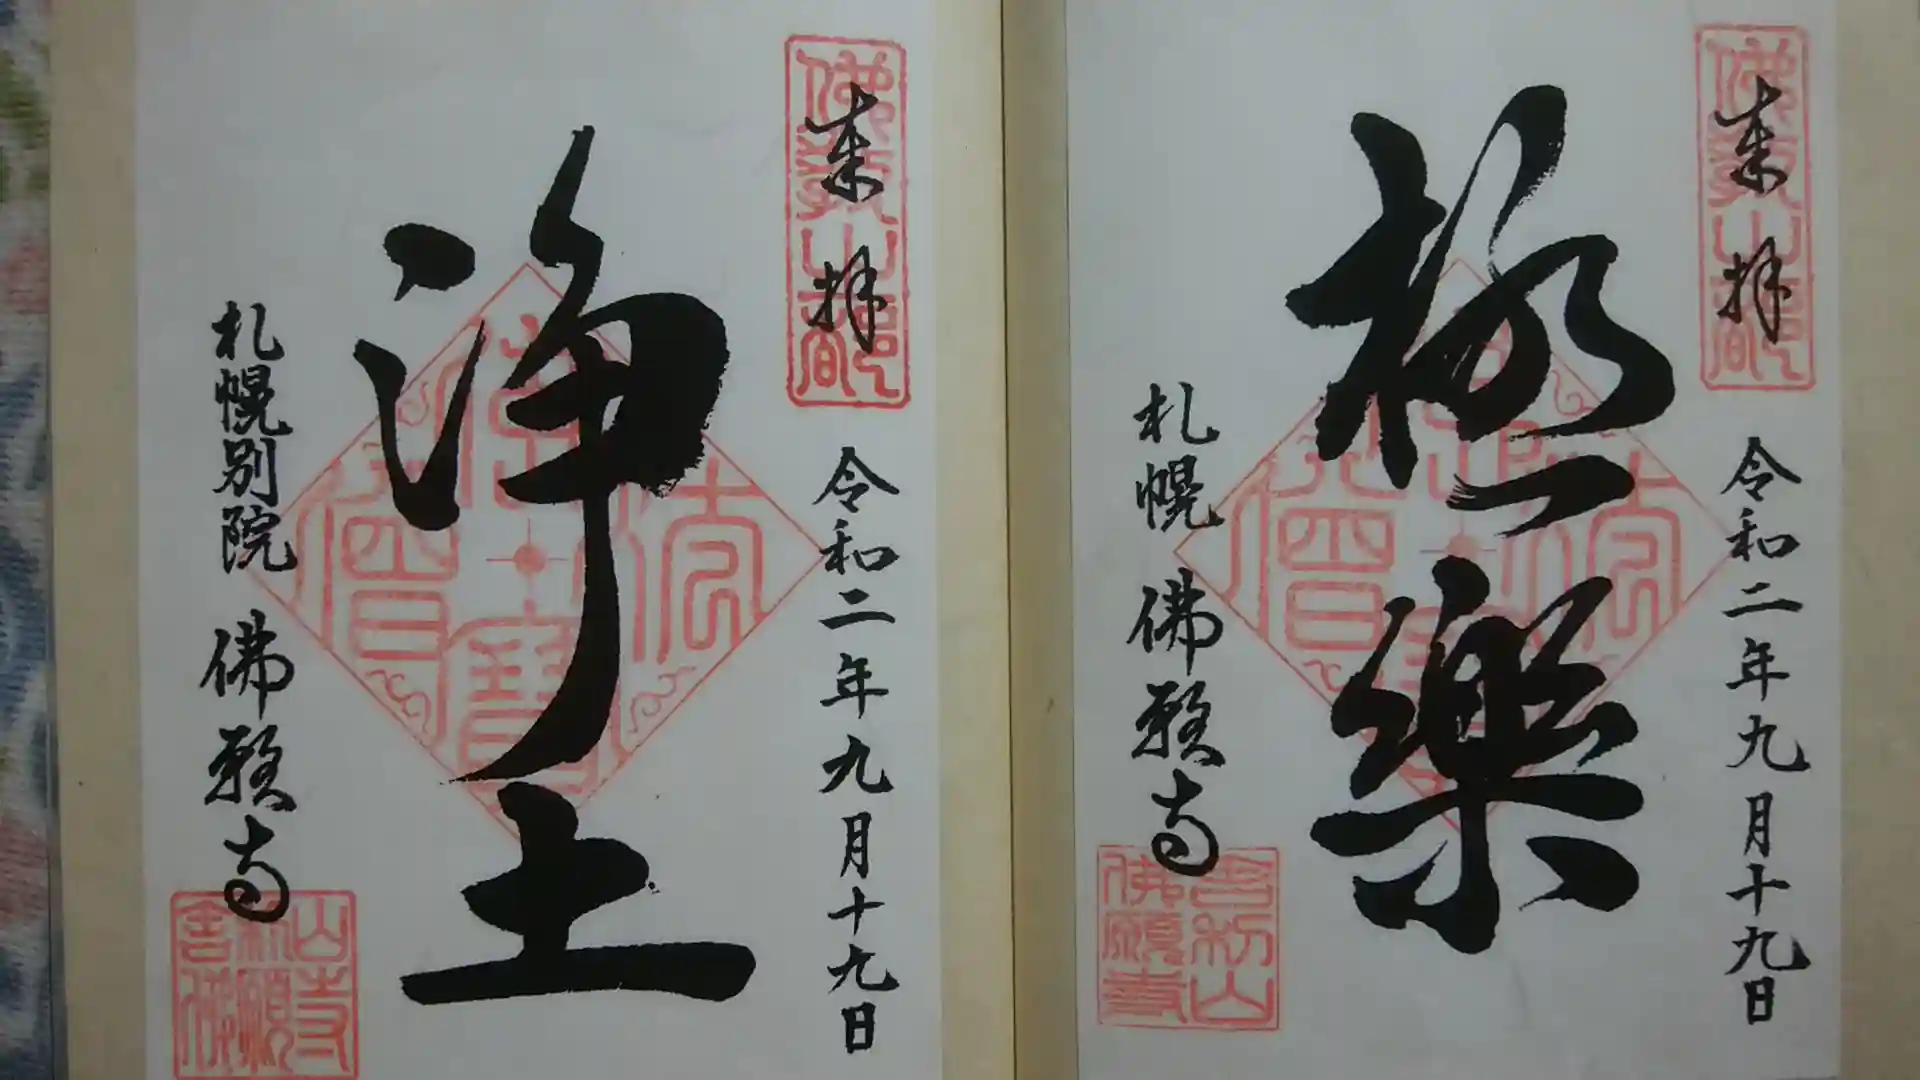 来拝
令和二年九月十九日
極楽
札幌 佛願寺
来拝
令和二年九月十九日
浄土
札幌別院 佛願寺